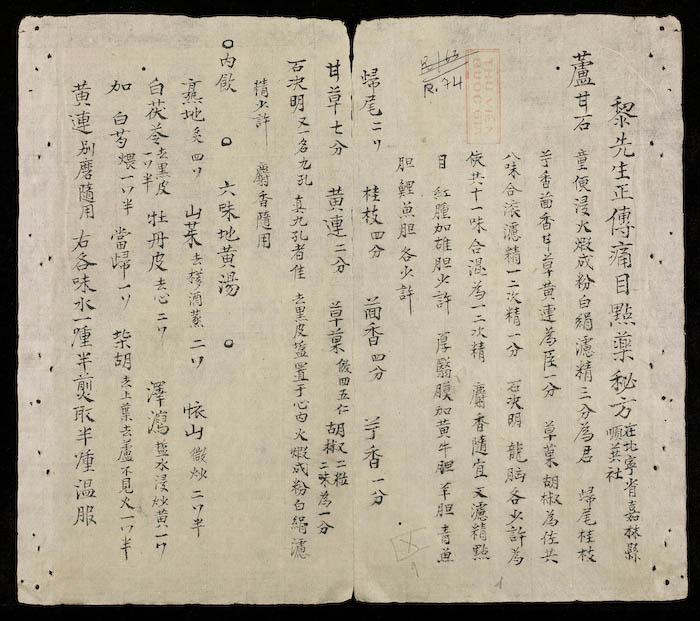 黎先生正傳痛目點藥秘方 在北寧省嘉林縣順英社
蘆甘石 童便浸火煅成粉白絹濾精三分為君 歸尾桂枝
芋香茴香甘草黃連為臣一分 草菓胡椒為佐共
八味合滾濾精一二次精一分 石决明 龍腦各少許為
使共十一味合混為一二次精 麝香隨宜又濾精點
目 紅腫加雄胆少許 厚翳膜加黃牛胆 羊胆 青魚
胆鯉魚胆各少許
R. 163
R. 74
THU VIEN QUOC GIA
歸尾二刂 桂枝四分 茴香四分 芋香一分
甘草七分 黃連二分 草菓 煨四五仁 胡椒 二粒 二味為一分
石决明 又一名九孔 真九孔者佳 去黑皮 盐置于心內火煅成粉白絹濾
精少許 麝香隨用
內飲 六味地黃湯
熟地 炙 四刂 山茱 去核酒蒸 二刂 懷山 微炒 二刂半
白茯苓 去黑皮 一刂半 牡丹皮 去心 二刂 澤瀉 盐水浸炒黃 一刂
加 白芍 煨 一刂半 當歸 一刂 柴胡 去上葉去蘆不見火 一刂半
黃連 別磨隨用 右各味水一𨤵半煎取半𨤵溫服
1